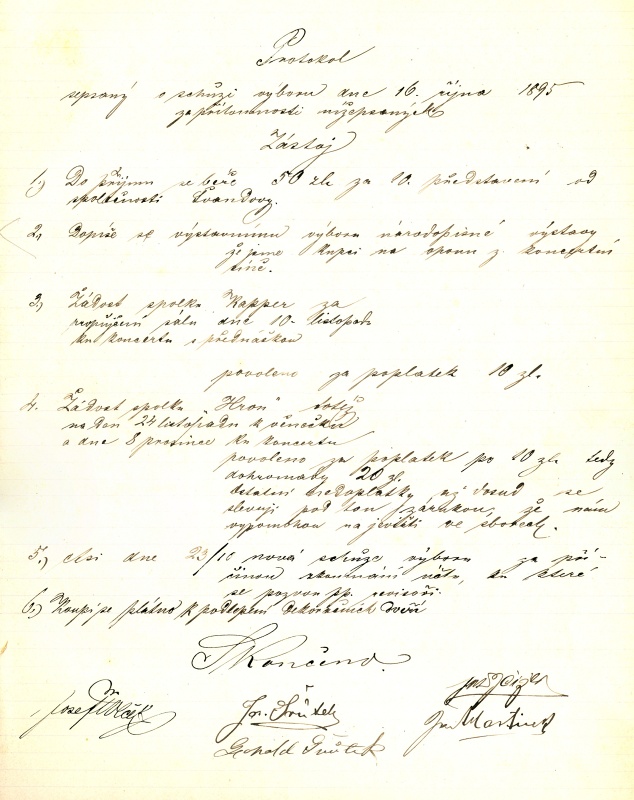 Protokol
sepsaný o schůzi výboru dne 16. října 1895
za přítomnosti nížepsaných
Zástoj
1.) Do příjmu se beře 50 zl. za 10. představení od
společnosti Švandovy.
2. Dopíše se výstavnímu výboru národopisné výstavy
že jsme kupci na oponu z koncertní
síně.
3.) Žádost spolku Kapper za
propůjčení sálu dne 10. listopadu
ku koncertu s přednáškou
povoleno za poplatek 10 zl.
4. Žádost spolku „Hron" totéž
na den 24 listopadu k věnečku
a dne 8 prosince ku koncertu
povoleno za poplatek po 10 zl. tedy
dohromady 20 zl.
Ostatní nedoplatky až dosud se
slevují pod tou zárukou, že nám
vypomohou na jevišti ve sborech.
5.) Asi dne 23/10 nová schůze výboru za pří-
činou zkoumání účtu, ku které
se pozvou pp. revisoři
6.) Koupí se plátno k podlepení dekoračních dveří
Skončeno.
Josef
Jos. Šrůtek
Jan Martínek
Leopold Šrůtek